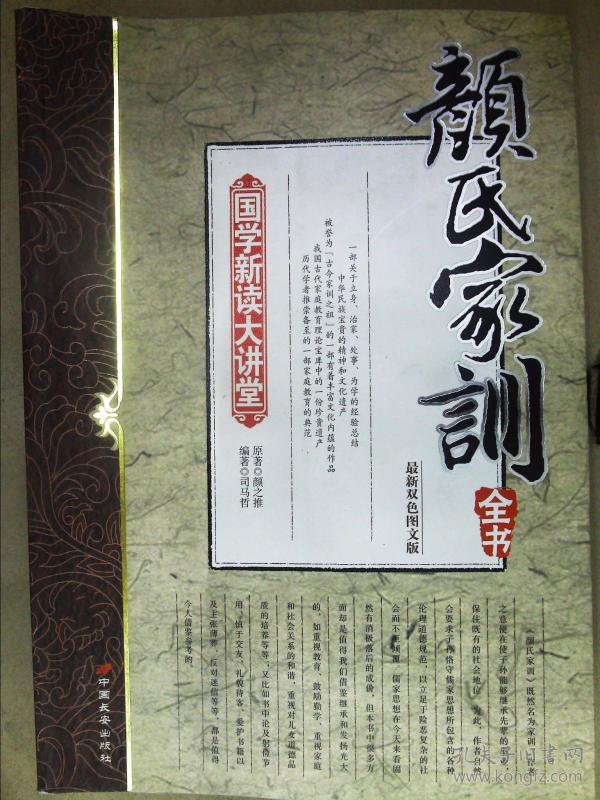 顔氏家訓
全书
最新双色图文版
一部关于立身、治家、处事、为学的经验总结
中华民族宝贵的精神和文化遗产
被誉为“古今家训之祖”的一部有着丰富文化内蕴的作品
我国古代家庭教育理论宝库中的一份珍贵遗产
历代学者推崇备至的一部家庭教育的典范
国学新读大讲堂
原著◎颜之推
编著◎司马哲
《颜氏家训》既然名为家训，作者
之意便在使子孙能够继承先辈的事业
保住既有的社会地位。为此，作者自然
会要求子孙恪守儒家思想所包含的各种
伦理道德规范，以立足于险恶复杂的社
会而不至倾覆。儒家思想在今天来看固
然有消极落后的成份，但本书中很多方
面却是值得我们借鉴继承和发扬光大
的。如重视教育、鼓励勤学、重视家庭
和社会关系的和谐，重视对儿女道德品
质的培养等等；又比如书中论及射俭节
用、慎于交友、礼貌待客、爱护书籍以
及主张薄葬、反对迷信等等，都是值得
今人借鉴参考的。
中国长安出版社
孔夫子旧书网
www.kongfz.com